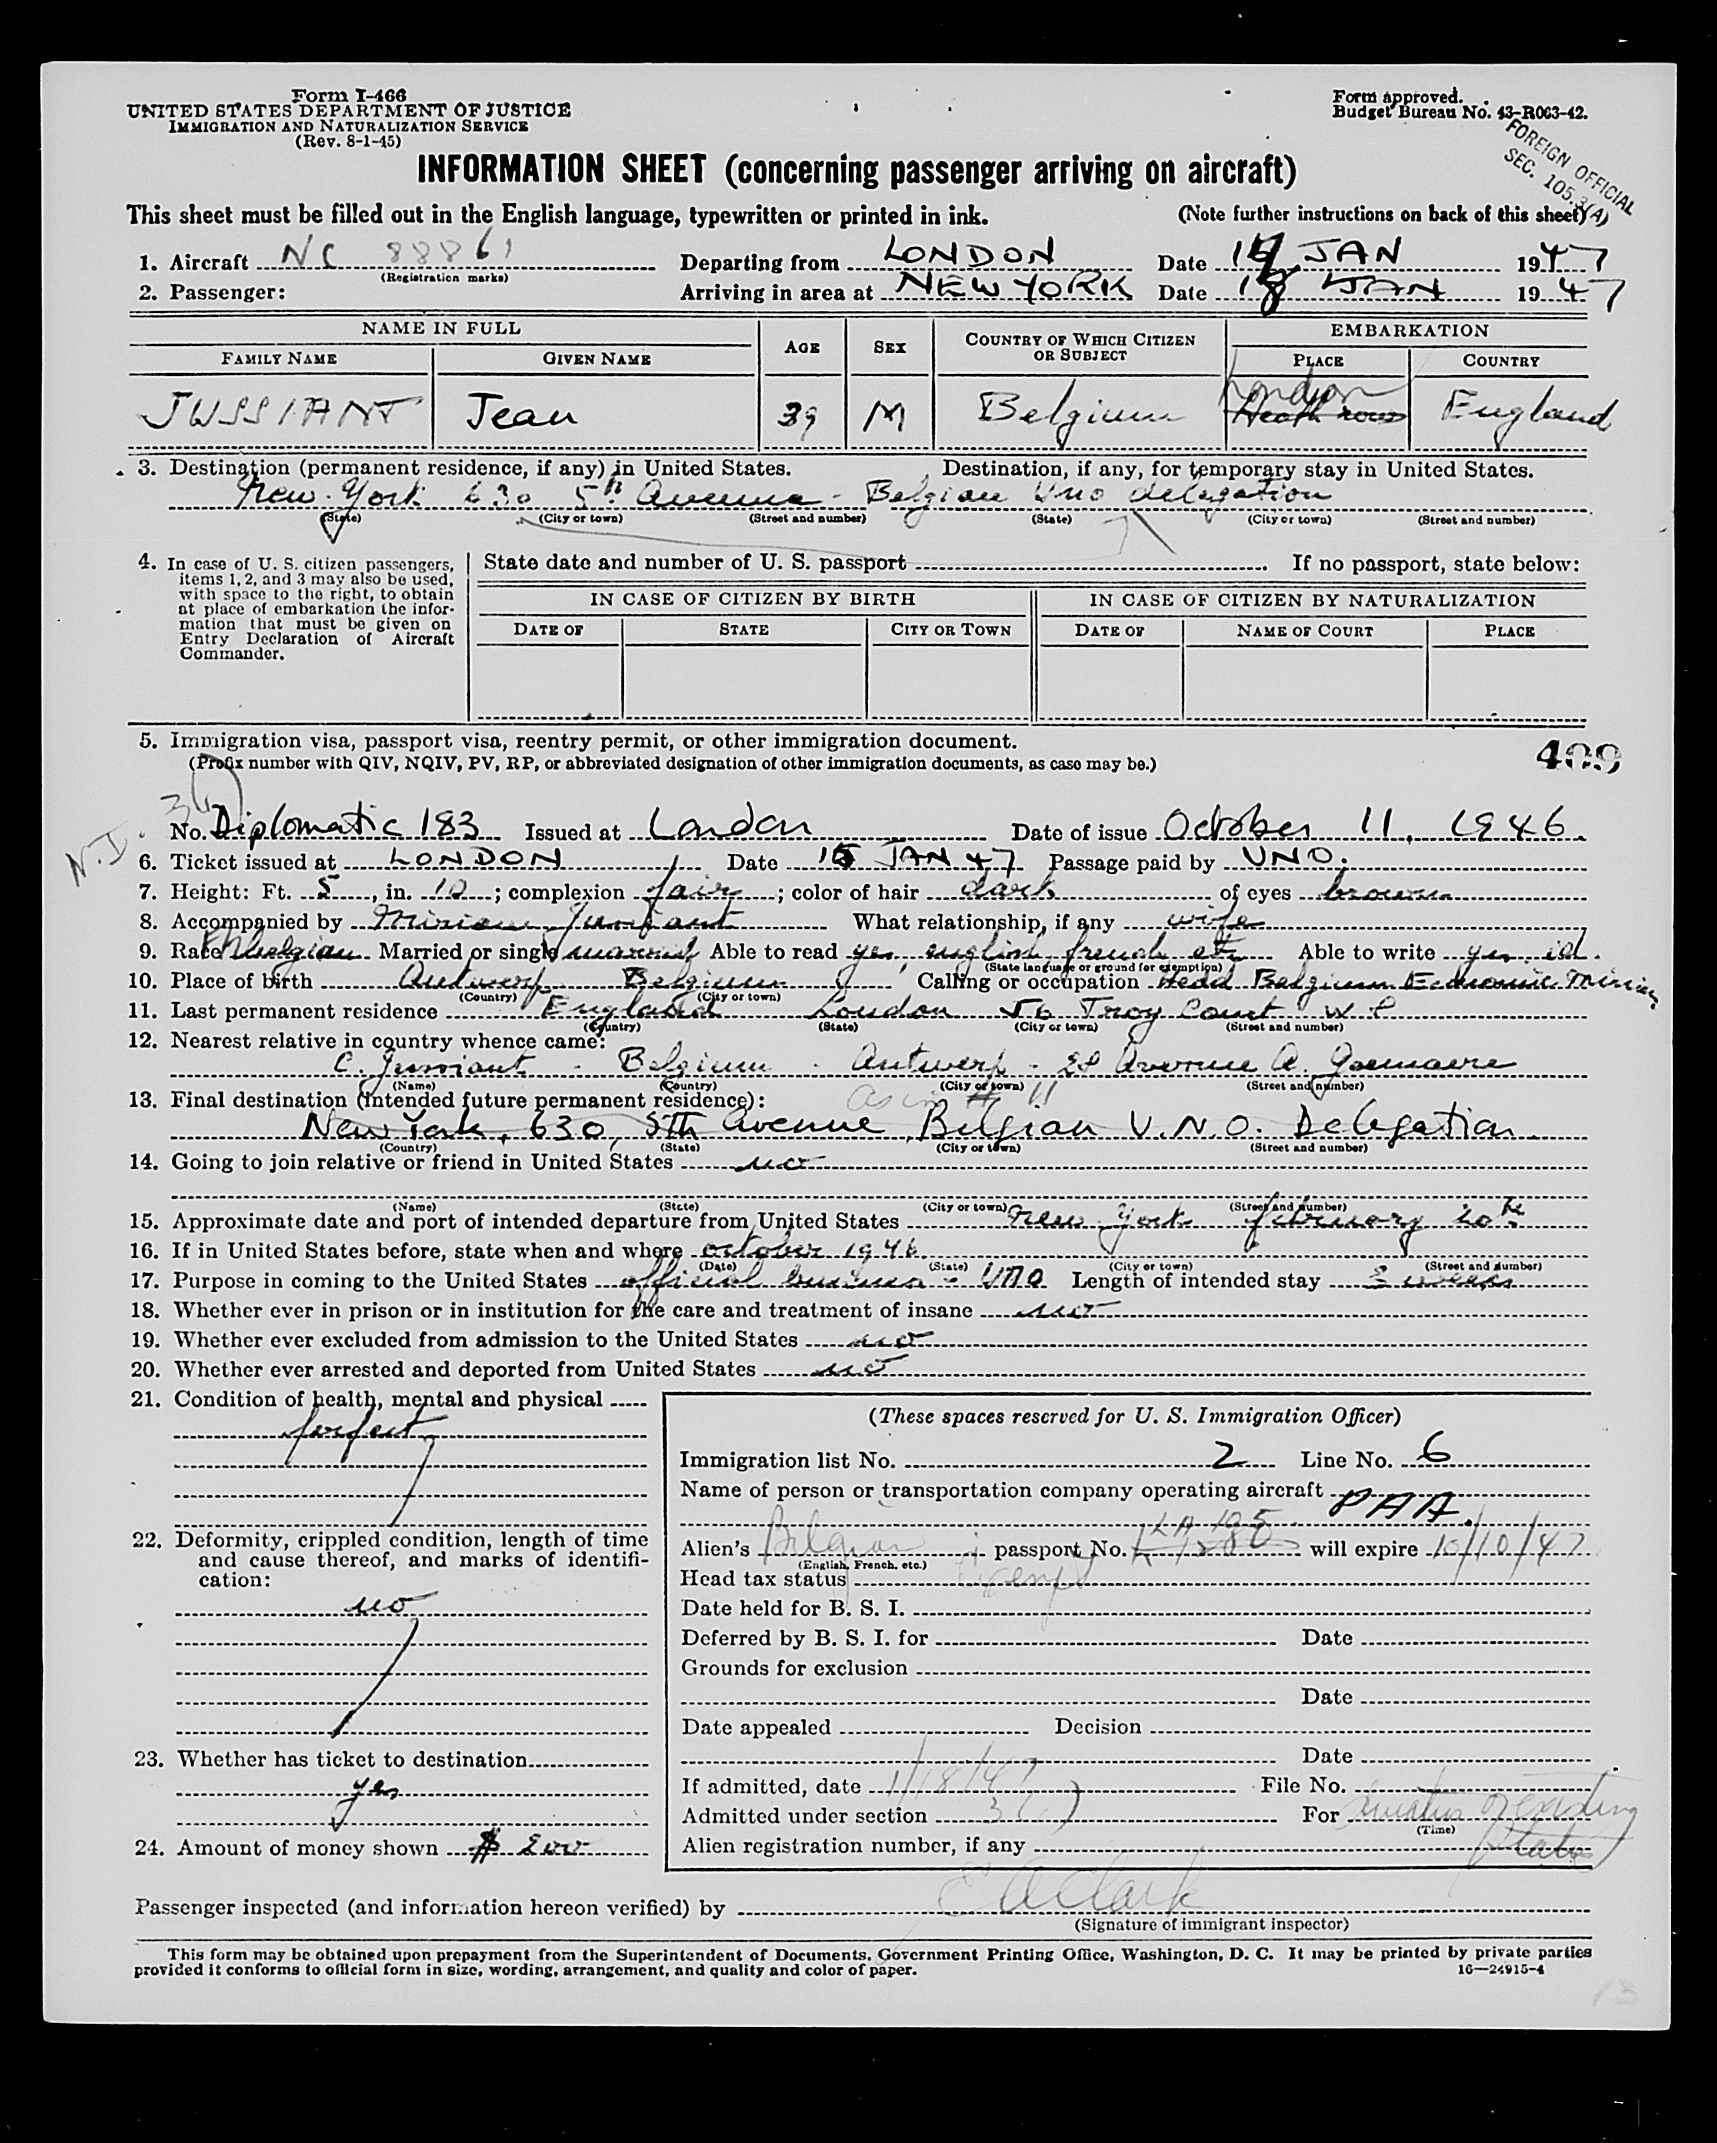 Form I-466
UNITED STATES DEPARTMENT OF JUSTICE
IMMIGRATION AND NATURALIZATION SERVICE
(Rev. 8-1-45)
Form approved.
Budget Bureau No. 43-R063-42.
FOREIGN OFFICIAL
SEC. 105.3(A)
INFORMATION SHEET (concerning passenger arriving on aircraft)
This sheet must be filled out in the English language, typewritten or printed in ink. (Note further instructions on back of this sheet)
1. Aircraft NC 88861 Departing from LONDON Date 17 JAN 1947
(Registration marks)
2. Passenger: Arriving in area at NEW YORK Date 18 JAN 1947
NAME IN FULL AGE SEX COUNTRY OF WHICH CITIZEN OR SUBJECT EMBARKATION
FAMILY NAME GIVEN NAME PLACE COUNTRY
London
JUSSIANT Jean 39 M Belgium Heath row England
3. Destination (permanent residence, if any) in United States. Destination, if any, for temporary stay in United States.
New York 630 5th Avenue - Belgian Uno delegation
(State) (City or town) (Street and number) (State) (City or town) (Street and number)
4. In case of U. S. citizen passengers, items 1, 2, and 3 may also be used, with space to the right, to obtain at place of embarkation the information that must be given on Entry Declaration of Aircraft Commander.
State date and number of U. S. passport If no passport, state below:
IN CASE OF CITIZEN BY BIRTH IN CASE OF CITIZEN BY NATURALIZATION
DATE OF STATE CITY OR TOWN DATE OF NAME OF COURT PLACE
5. Immigration visa, passport visa, reentry permit, or other immigration document.
(Prefix number with QIV, NQIV, PV, RP, or abbreviated designation of other immigration documents, as case may be.)
409
N.I. 3(1)
No. Diplomatic 183 Issued at London Date of issue October 11, 1946.
6. Ticket issued at LONDON Date 15 JAN 47 Passage paid by UNO.
7. Height: Ft. 5, in. 10; complexion fair; color of hair dark of eyes brown
8. Accompanied by Miriam Jussiant What relationship, if any wife
9. Race belgian Married or single married Able to read yes, english french etc Able to write yes id.
(State language or ground for exemption)
10. Place of birth Antwerp Belgium Calling or occupation Head Belgium Economic Mission
(Country) (City or town)
11. Last permanent residence England London 56 Troy Court W 8
(Country) (State) (City or town) (Street and number)
12. Nearest relative in country whence came:
C. Jussiant - Belgium - Antwerp - 28 Avenue A. Goemaere
(Name) (Country) (City or town) (Street and number)
13. Final destination (intended future permanent residence): as in # 11
New York, 630, 5th Avenue, Belgian U.N.O. Delegation
(Country) (State) (City or town) (Street and number)
14. Going to join relative or friend in United States no
(Name) (State) (City or town) (Street and number)
15. Approximate date and port of intended departure from United States New York february 10th
16. If in United States before, state when and where october 1946
(Date) (State) (City or town) (Street and number)
17. Purpose in coming to the United States official business - UNO Length of intended stay 3 weeks
18. Whether ever in prison or in institution for the care and treatment of insane no
19. Whether ever excluded from admission to the United States no
20. Whether ever arrested and deported from United States no
21. Condition of health, mental and physical
perfect
22. Deformity, crippled condition, length of time and cause thereof, and marks of identification:
no
23. Whether has ticket to destination
yes
24. Amount of money shown $ 200
(These spaces reserved for U. S. Immigration Officer)
Immigration list No. 2 Line No. 6
Name of person or transportation company operating aircraft PAA.
LA 195
Alien's Belgian passport No. will expire 10/10/47
(English, French, etc.)
Head tax status exempt
Date held for B. S. I.
Deferred by B. S. I. for Date
Grounds for exclusion
Date
Date appealed Decision
Date
If admitted, date 1/18/47 File No.
Admitted under section 3(1) For
(Time)
status
Alien registration number, if any
Passenger inspected (and information hereon verified) by E A Clark
(Signature of immigrant inspector)
This form may be obtained upon prepayment from the Superintendent of Documents, Government Printing Office, Washington, D. C. It may be printed by private parties
provided it conforms to official form in size, wording, arrangement, and quality and color of paper. 16—24915-4
13